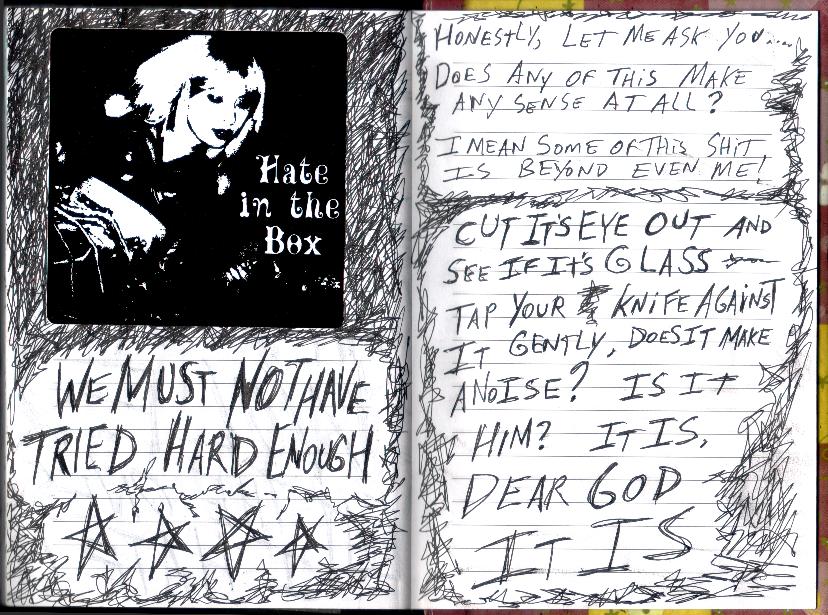 Hate
in the
Box
WE MUST NOT HAVE
TRIED HARD ENOUGH
HONESTLY, LET ME ASK YOU....
DOES ANY OF THIS MAKE
ANY SENSE AT ALL?
I MEAN SOME OF THIS SHIT
IS BEYOND EVEN ME!
CUT IT'S EYE OUT AND
SEE IF IT'S GLASS
TAP YOUR KNIFE AGAINST
IT GENTLY, DOES IT MAKE
A NOISE? IS IT
HIM? IT IS,
DEAR GOD
IT IS